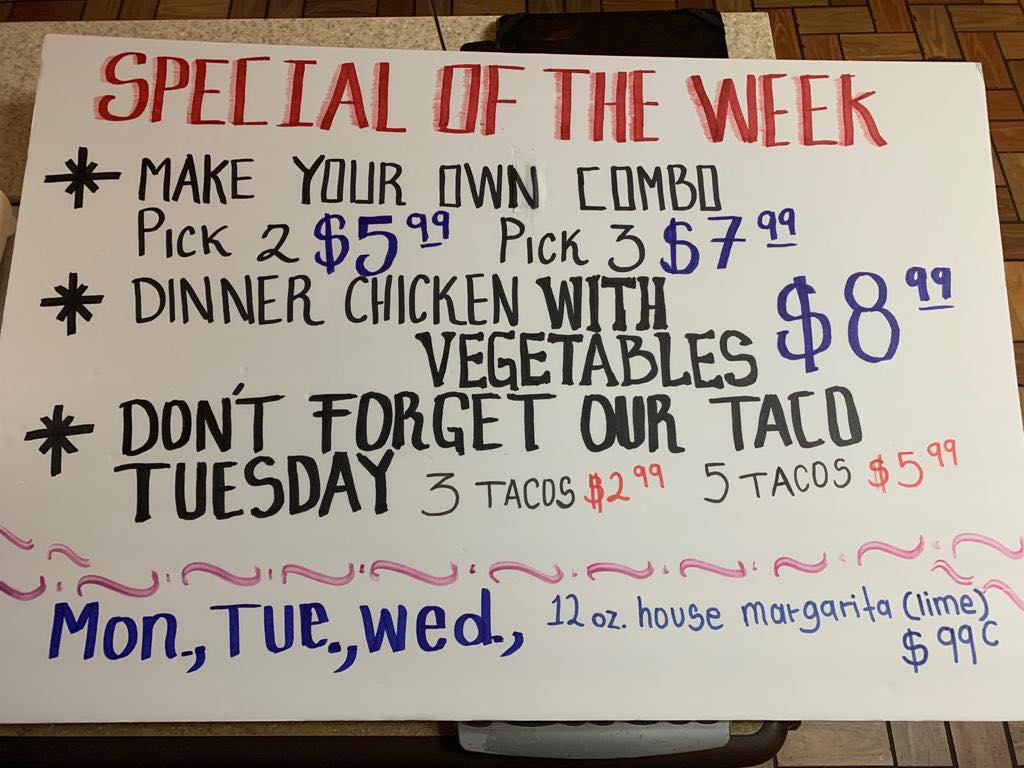 SPECIAL OF THE WEEK
* MAKE YOUR OWN COMBO
Pick 2 $5.99 Pick 3 $7.99
* DINNER CHICKEN WITH
VEGETABLES $8.99
* DON'T FORGET OUR TACO
TUESDAY 3 TACOS $2.99 5 TACOS $5.99
Mon., TUE., wed., 12 oz. house margarita (lime)
$ 99¢